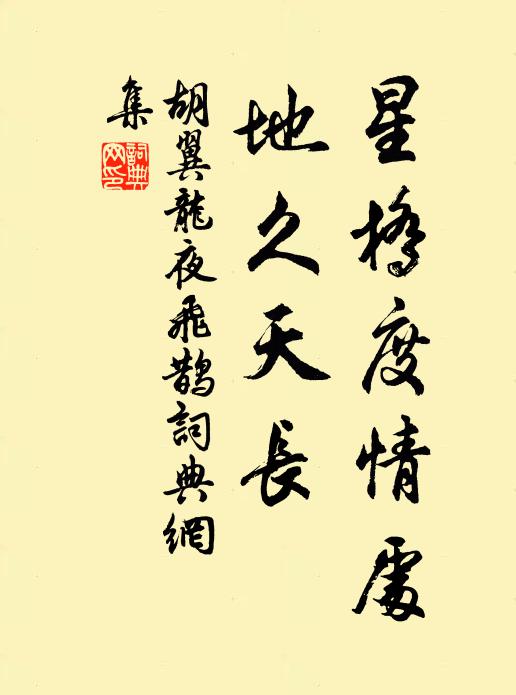 星橋度情處
地久天長
胡翼龍夜飛鵲詞典網
集
詞典
网印